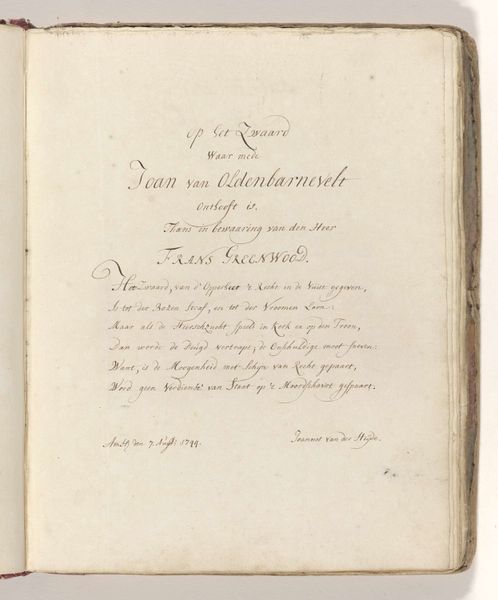 Op het Zwaard
Waar mede
Joan van Oldenbarnevelt
Onthooft is.
Thans in bewaaring van den Heer
FRANS GREENWOOD.
Het Zwaard, van d' Opperheer 't Recht in de Vuist gegeven,
Is tot der Bozen Straf, en tot der Vroomen Loon:
Maar als de Heerschzucht speelt in Kerk en op den Troon,
Dan word de Deugd vertrapt, de Onschuldige moet sneven:
Want, is de Moogenheid met Schijn van Recht gepaart,
Word geen Verdienste van Staat op 't Moordschavot gespaart.
Amst. den 7. Aug. 1744.
Joannes van der Heyde.